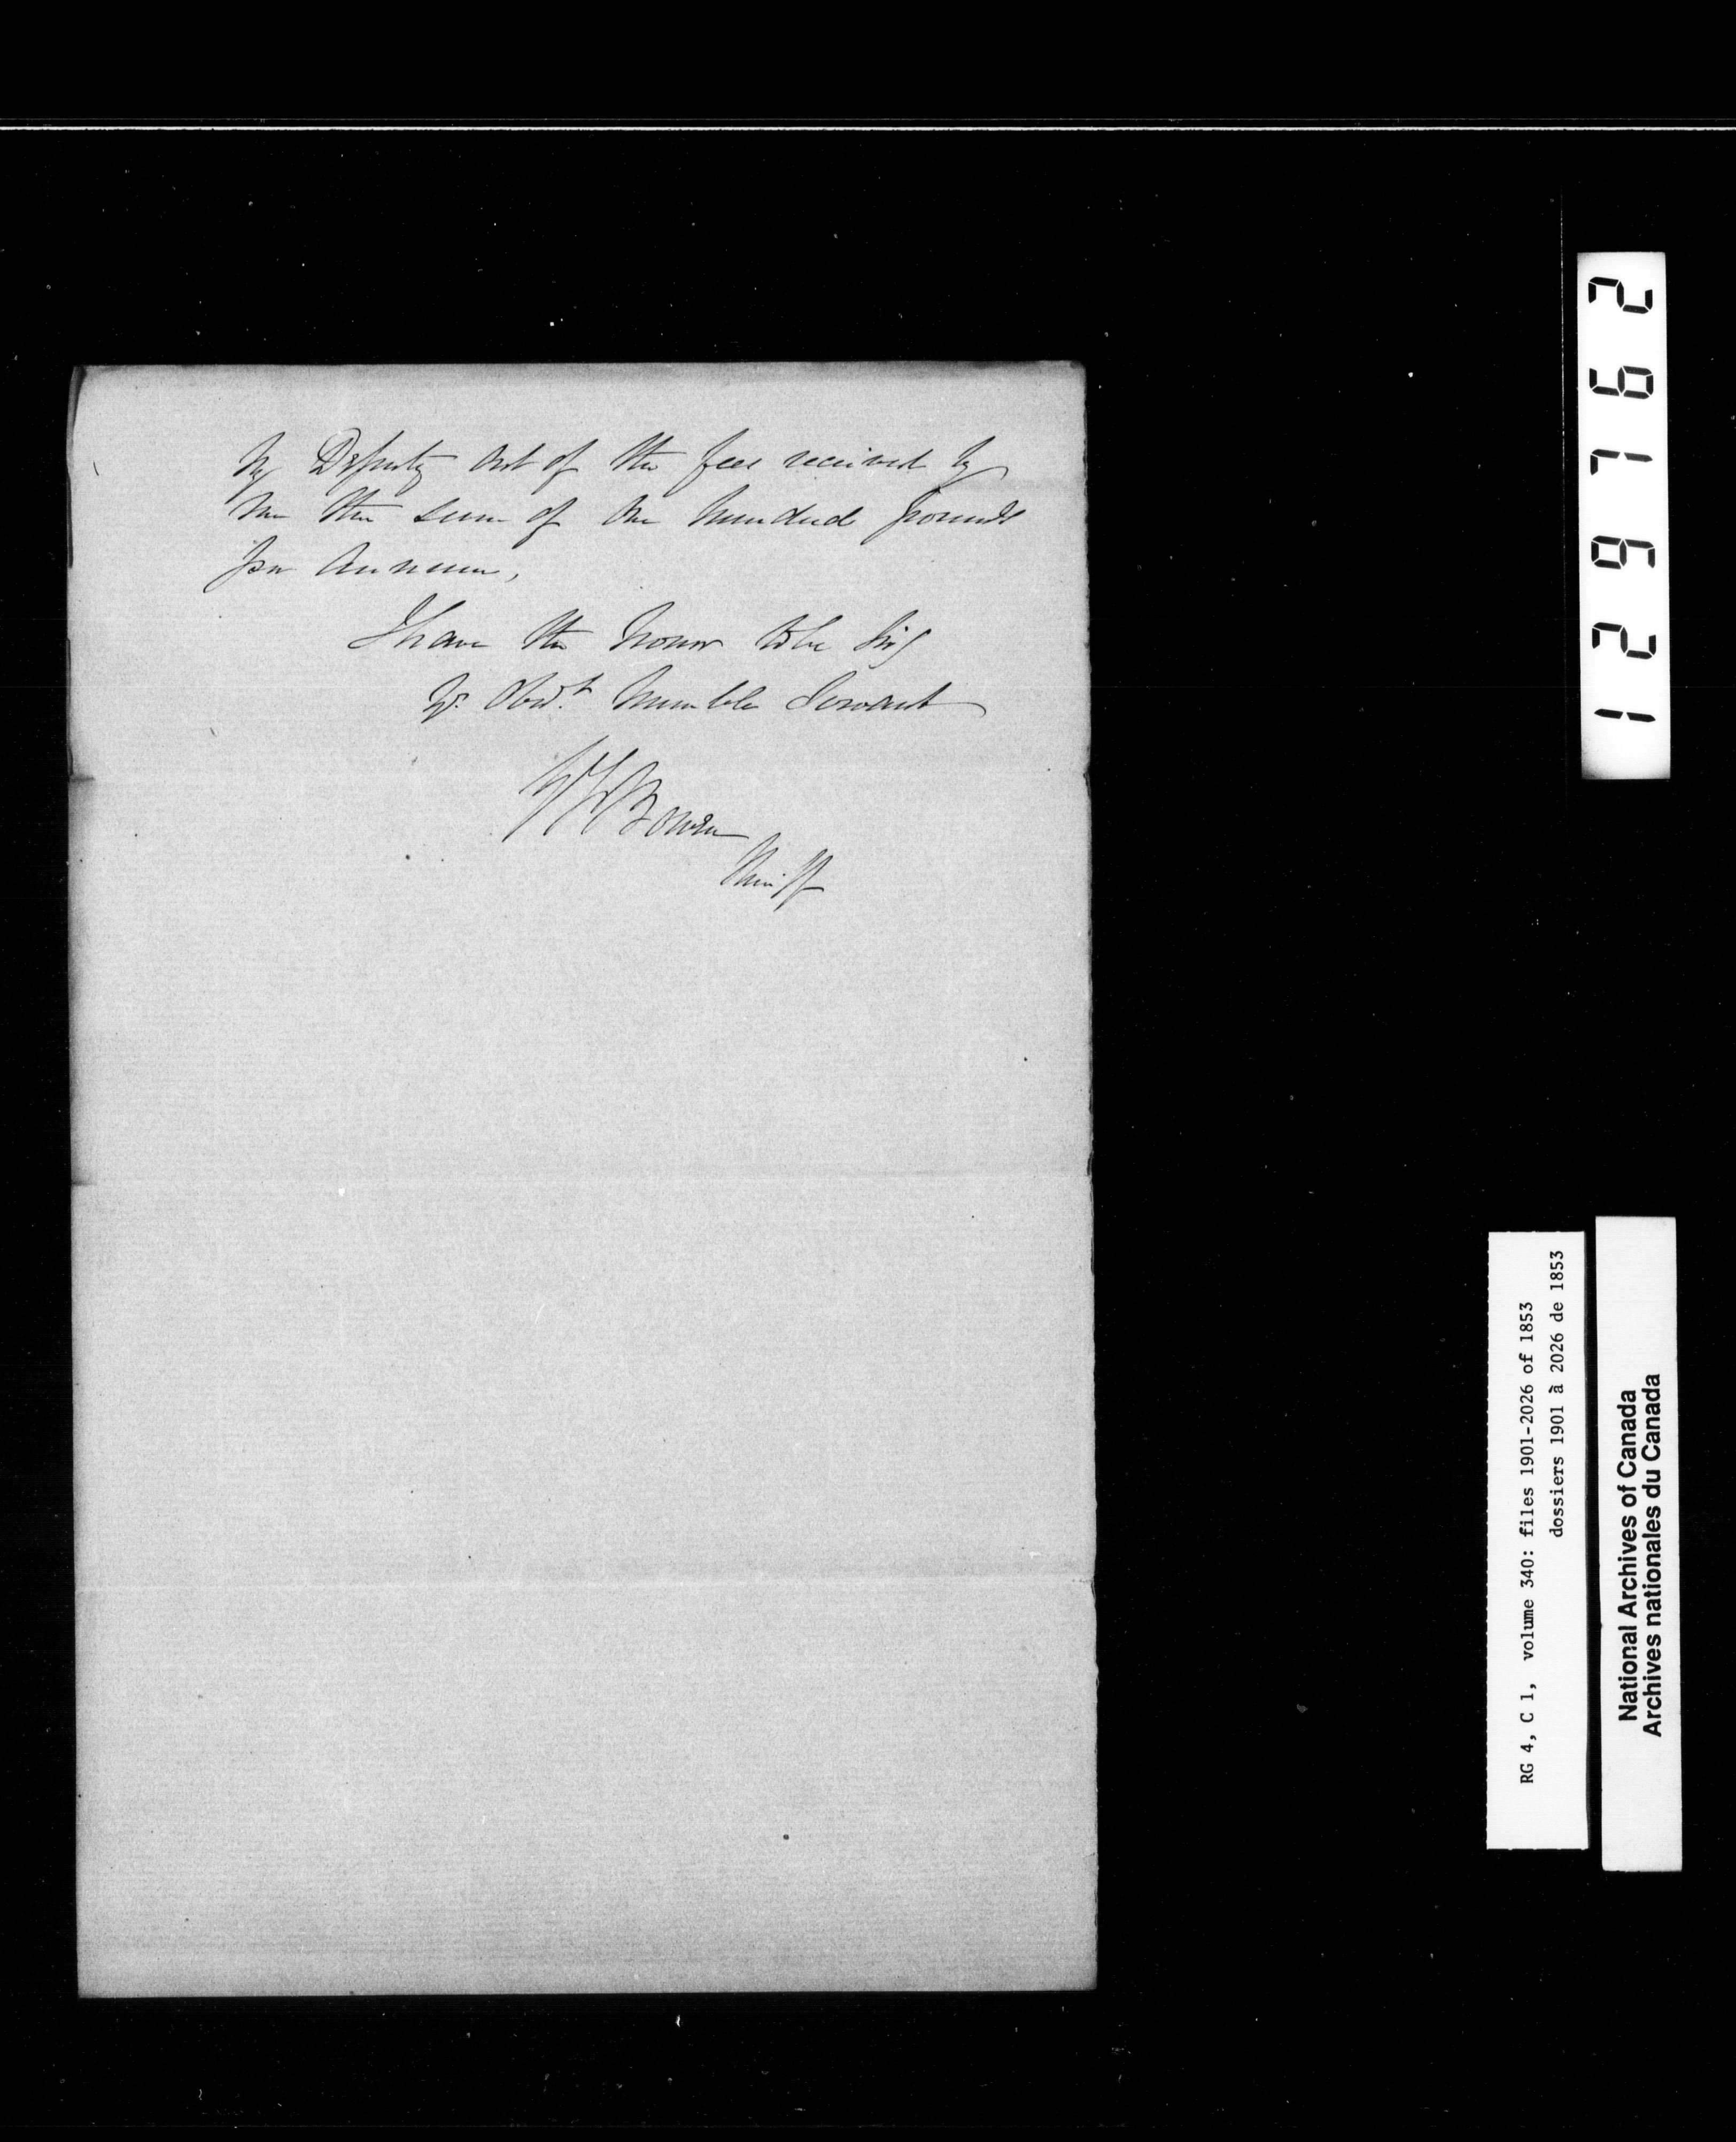 My Deputy out of the fees received by
me the sum of One hundred pounds
per Annum,
I have the honor to be Sir
Yr. Obdt. humble Servant
Bowen
Sheriff
129762
RG 4, C 1, volume 340: files 1901-2026 of 1853
dossiers 1901 à 2026 de 1853
National Archives of Canada
Archives nationales du Canada